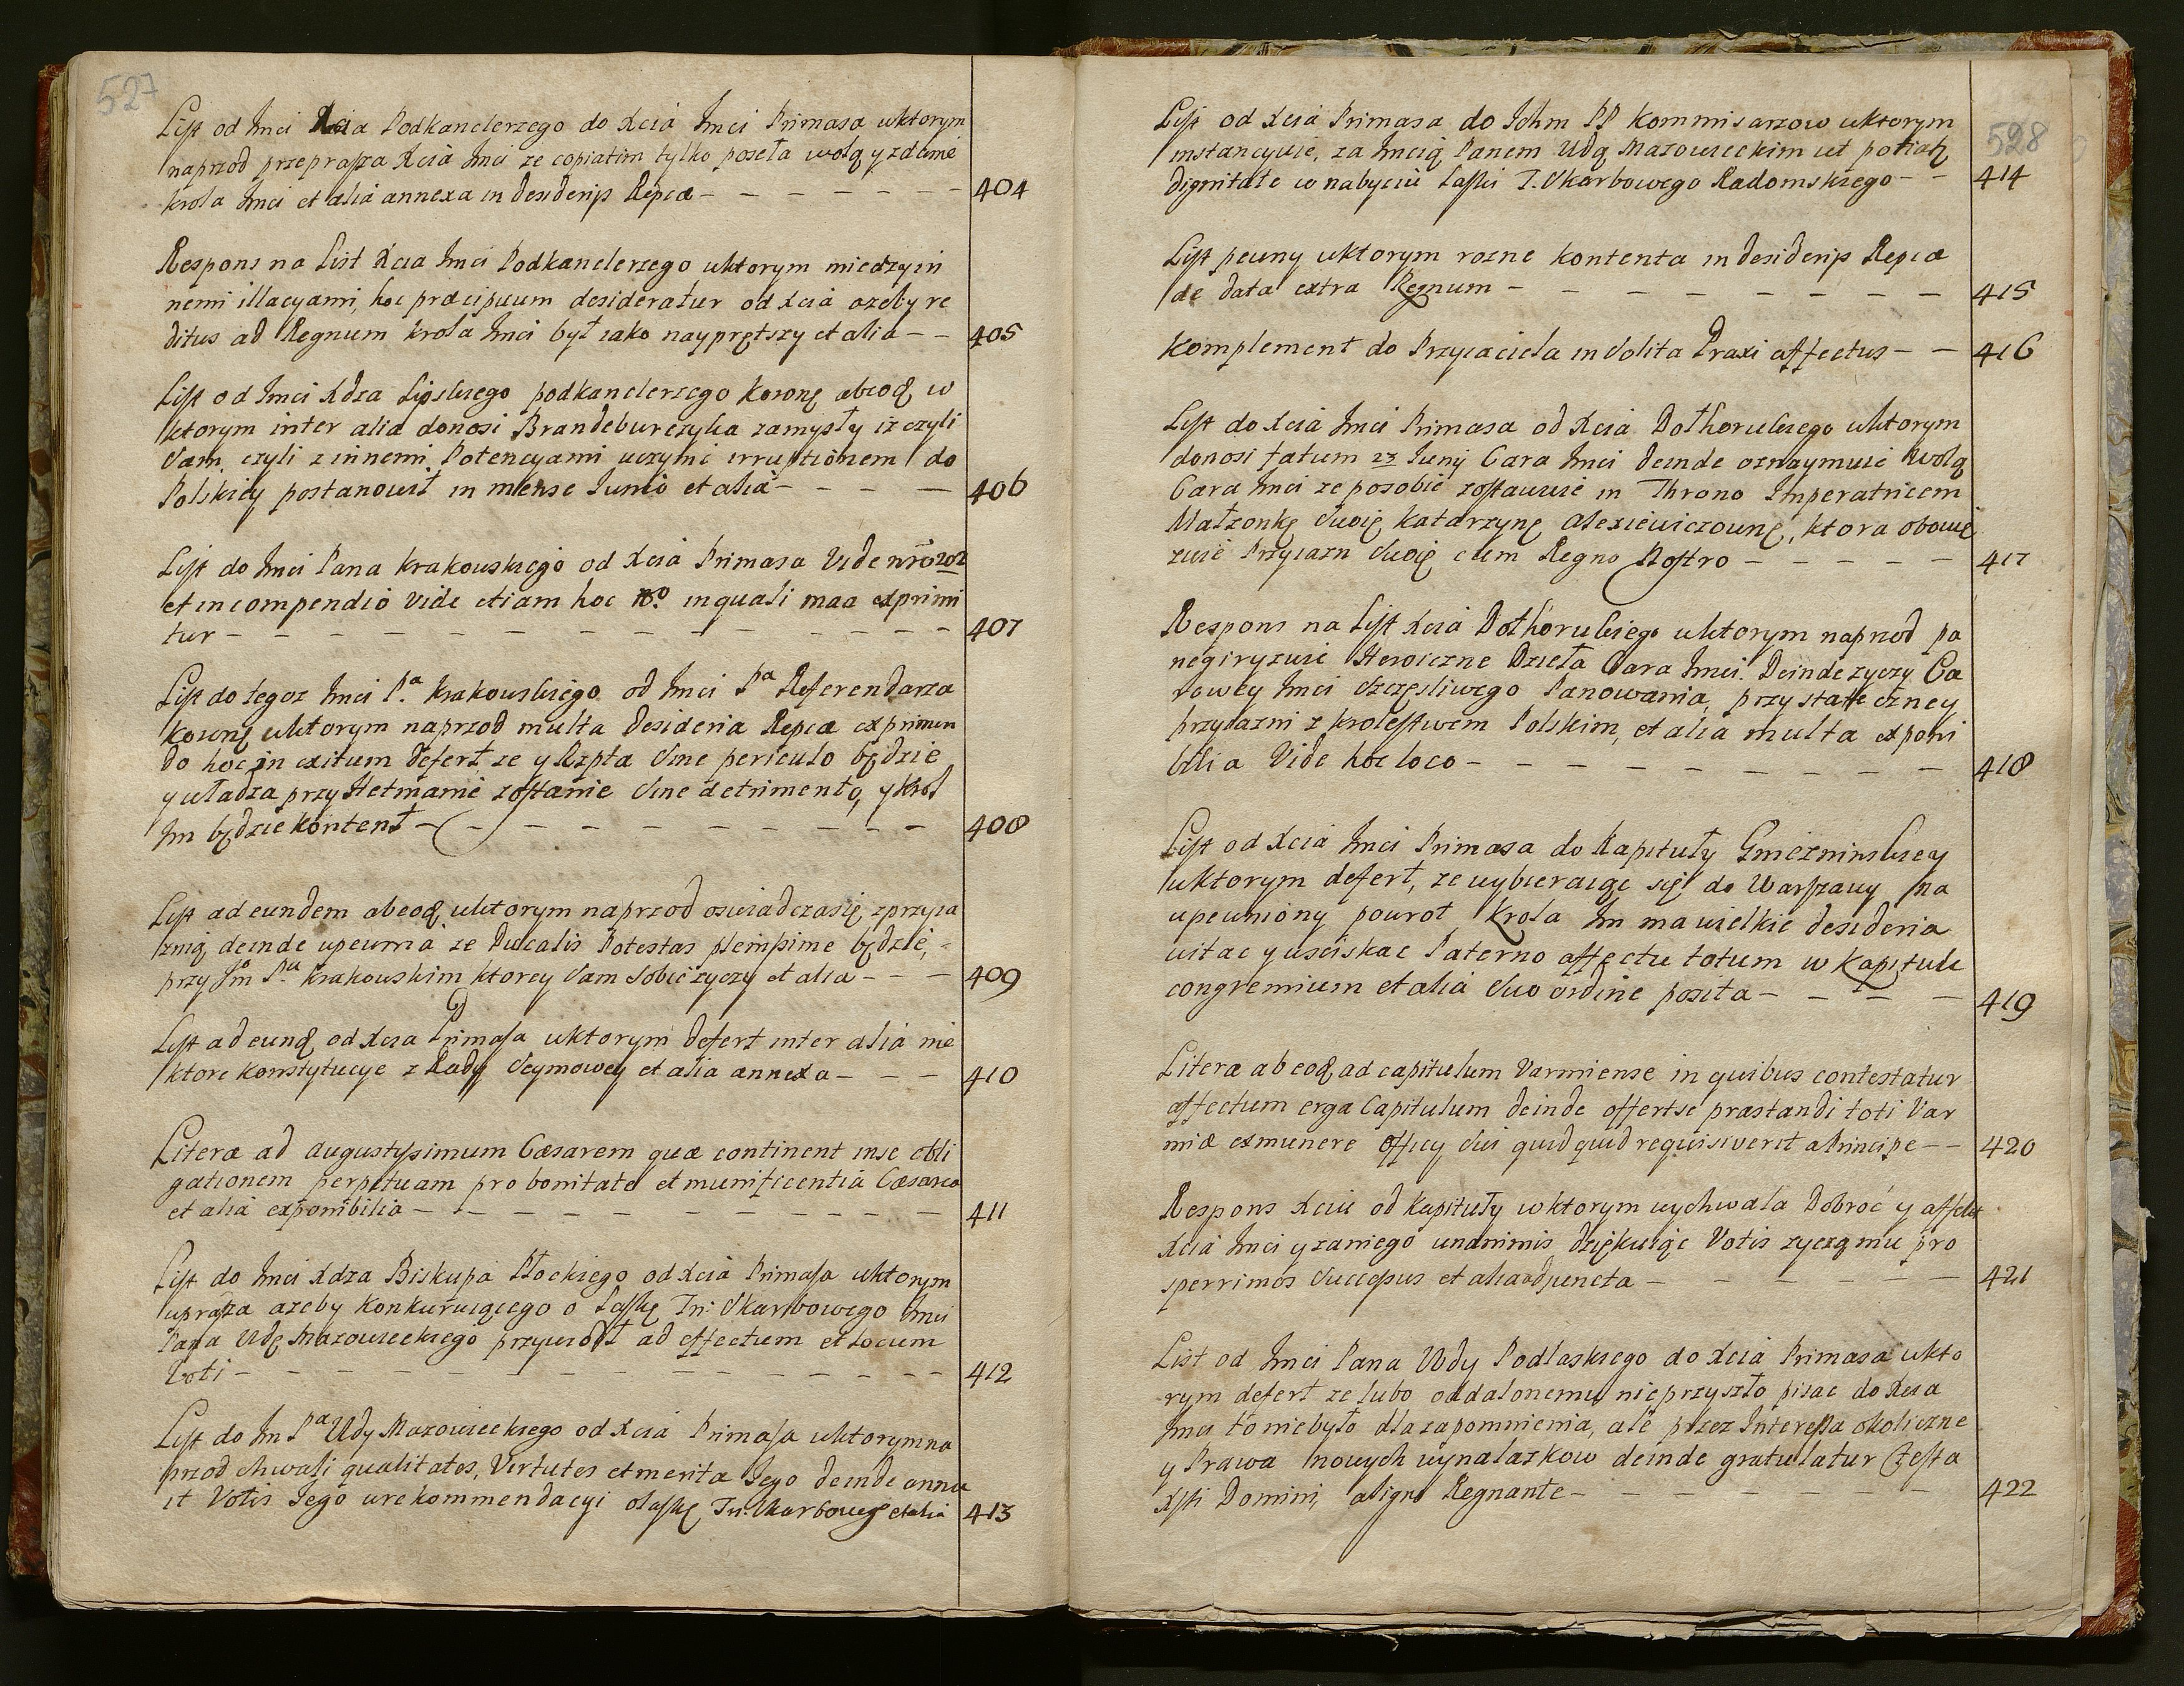 527
List od Jmci Xcia Podkanclerzego do Xcia Jmci Primasa wktorym
naprzod przeprasza Xcia Jmci ze copiatim tylko poseła wolą y zdanie
krola Jmci et alia annexa in desiderijs Repcæ - - - - - - - 404
Respons na List Xcia Jmci Podkanclerzego wktorym miedzy in
nemi illacyami, hoc præcipuum desideratur od Xcia azeby re
ditus ad Regnum krola Jmci był iako nayprętszy et alia - - 405
List od Jmci Xdza Lipskiego podkanclerzego Koronę abeoq w
ktorym inter alia donosi Brandeburczyka zamysły iz czyli
Sam, czyli z innemi Potencyami uczynic irruptionem do
Polskiey postanowił in mense Junio et alia - - - - 406
List do Jmci Pana krakowskiego od Xcia Primasa Vide nro 202
et in compendio vide etiam hoc No. in quali maa exprimi
tur - - - - - - - - - - - - - 407
List do tegoz Jmci Pa. krakowskiego od Jmci Pa Referendarza
koronę wktorym naprzod multa desideria Repcæ exprimen
do hoc in exitum defert ze y Rzpta sine periculo będzie
y władza przy Hetmanie zostanie sine detrimento, y krol
Jm będzie kontent - - - - - - - - - 408
List ad eundem abeoq wktorym naprzod oswiadcza się z przyia
znią, deinde upewnia ze Ducalis Potestas plenissime będzie,
przy Jm Pu krakowskim ktorey Sam Sobie zyczy et alia - - - 409
List ad eunq od Xcia Primasa wktorym defert inter alia nie
ktore konstytucye z Rady Seymowey et alia annexa - - - 410
Literæ ad Augustyssimum Cæsarem quæ continent in se obli
gationem perpetuam pro bonitate et munificentia Cæsarea
et alia exponibilia - - - - - - - - - 411
List do Jmci Xdza Biskupa Płockiego od Xcia Primasa wktorym
uprasza azeby konkuruiącego o Laskę Trı: Skarbowego Jmci
Pana Wdę Mazowieckiego przywiodł ad effectum et locum
Voti - - - - - - - - - - - - 412
List do Jm Pa Wdy Mazowieckiego od Xcia Primasa wktorym na
przod chwali qualitates, Virtutes et merita Jego deinde annu
it Votis Jego w rekommendacyi o laskę Trı: Skarbowę et alia 413
528
List od Xcia Primasa do Ichm PP kommisarzow wktorym
instancyuie, za Jmcią Panem Wdą Mazowieckim ut potiatq
dignitate w nabyciu Laski T. Skarbowego Radomskiego - - 414
List pewny wktorym rozne kontenta in desiderijs Repcæ
de data extra Regnum - - - - - - - - 415
Komplement do Przyiaciela in Solita Praxi affectus - - 416
List do Xcia Jmci Primasa od Xcia Dołhoruckiego wktorym
donosi fatum 23 Junij Cara Jmci deinde oznaymuie wolą
Cara Jmci ze po sobie zostawuie in Throno Imperatricem
Małzonkę Swoię katarzynę Alexiewiczownę, ktora obowię
zuie Przyiazn Swoię cum Regno Nostro - - - - - 417
Respons na List Xcia Dołhoruckiego wktorym naprzod pa
negiryzuie Heroiczne Dzieła Cara Jmci. Deinde zyczy Ca
rowey Jmci Szczęsliwego Panowania, przy statecznej
przyiazni z krolestwem Polskim, et alia multa exponi
bilia Vide hoc loco - - - - - - - - - 418
List od Xcia Jmci Primasa do Kapituły Gnieznienskiey
wktorym defert, ze wybieraiąc się do Warszawy na
upewniony powrot krola Jm ma wielkie desideria
witac y usciskac Paterno affectu totum w kapitule
congremium et alia Suo ordine posita - - - - 419
Literæ abeoq ad capitulum Varmiense in quibus contestatur
affectum erga Capitulum deinde offert se præstandi toti Var
miæ ex munere officy Sui quidquid requisiverit a Principe - - 420
Respons Xciu od kapituły wktorym wychwala Dobroć y affekt
Xcia Jmci y zaniego unanimis dziękuiąc Votis zyczą mu pro
sperrimos Successus et alia adjuncta - - - - - - 421
List od Jmci Pana Wdy Podlaskiego do Xcia Primasa wkto
rym defert ze lubo oddalonemu nie przyszło pisac do Xcia
Jmci to nie było dla zapomnienia, ale przez Interessa okoliczne
y Prawa nowych wynalazkow deinde gratulatur Festa
Xsti Domini, a ligno Regnante - - - - - - 422